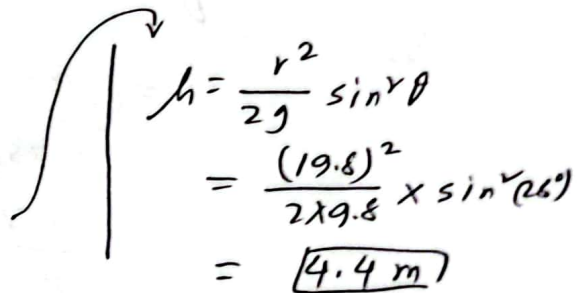 h = r²/2g sin²θ
= (19.8)²/2×9.8 × sin²(26°)
= 4.4 m